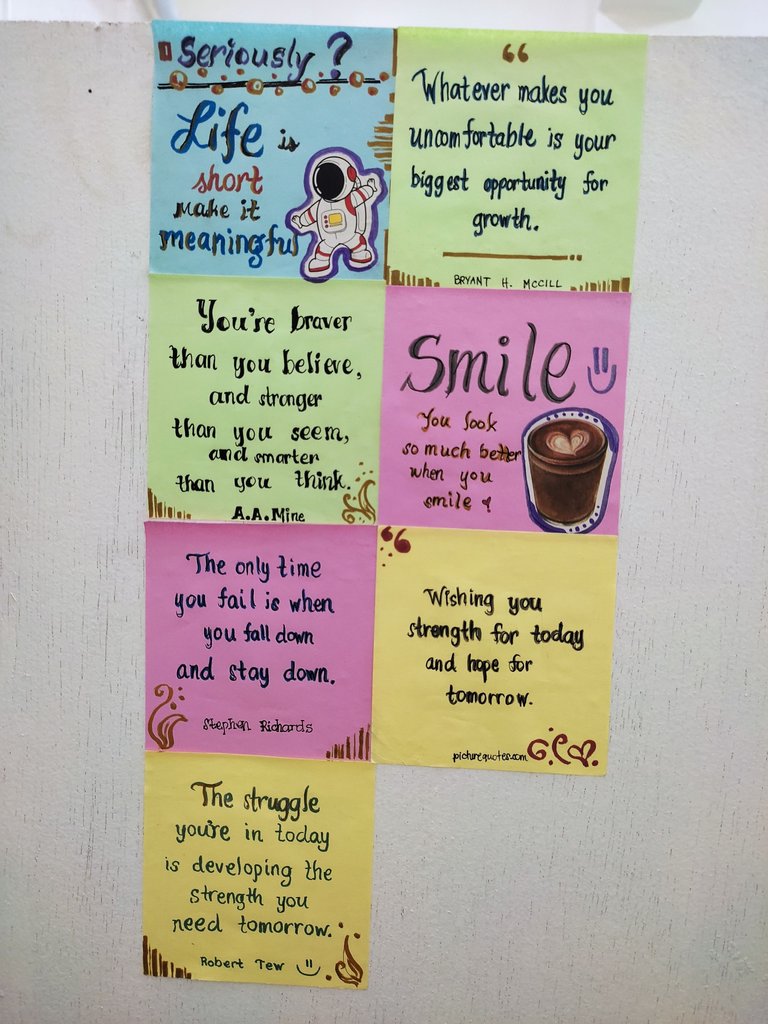 Seriously?
Life is
short
make it
meaningful
“
Whatever makes you
uncomfortable is your
biggest opportunity for
growth.
BRYANT H. McCILL
You're braver
than you believe,
and stronger
than you seem,
and smarter
than you think.
A.A.Mine
Smile
You look
so much better
when you
smile
The only time
you fail is when
you fall down
and stay down.
Stephen Richards
“
Wishing you
strength for today
and hope for
tomorrow.
picturequotes.com
The struggle
you're in today
is developing the
strength you
need tomorrow.
Robert Tew